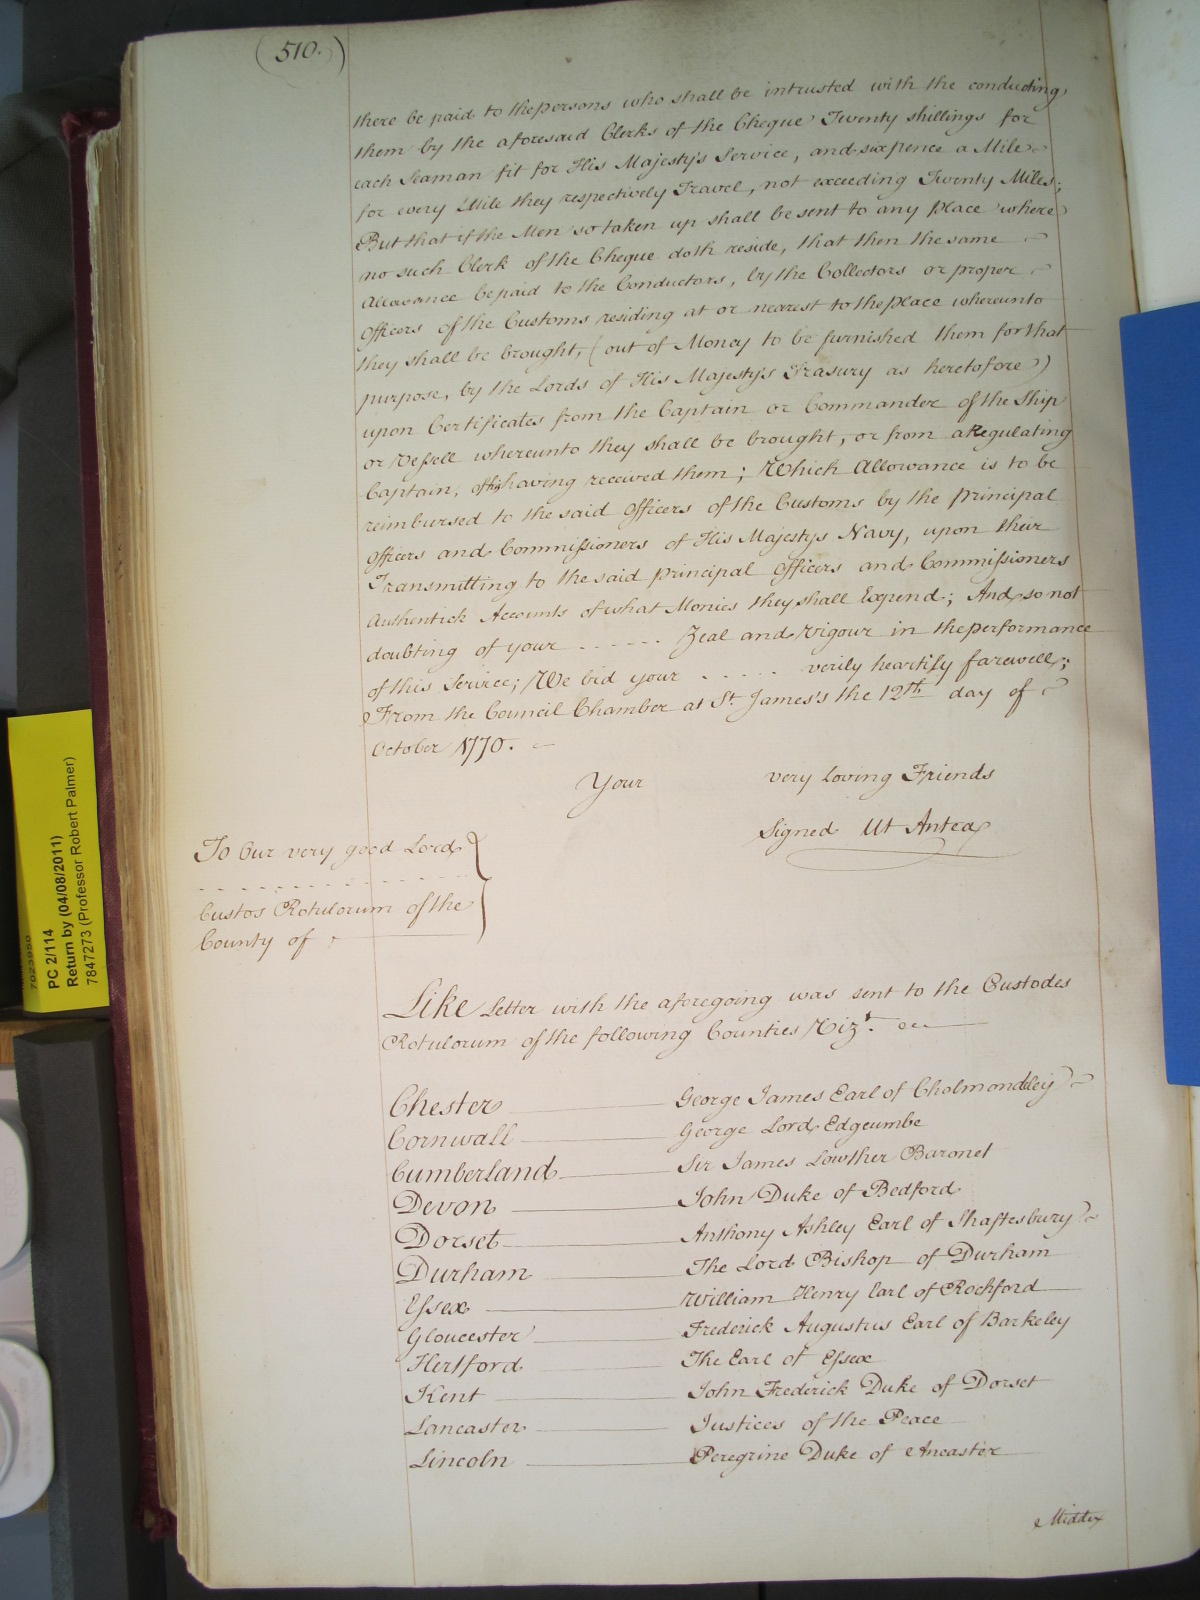 (510.)
there be paid to the persons who shall be intrusted with the conducting
them by the aforesaid Clerks of the Cheque Twenty shillings for
each Seaman fit for His Majesty's Service, and sixpence a Mile
for every Mile they respectively Travel, not exceeding Twenty Miles;
But that if the Men so taken up shall be sent to any place where
no such Clerk of the Cheque doth reside, that then the same
Allowance be paid to the Conductors, by the Collectors or proper
Officers of the Customs residing at or nearest to the place whereunto
they shall be brought, (out of Money to be furnished them for that
purpose, by the Lords of His Majesty's Treasury as heretofore)
upon Certificates from the Captain or Commander of the Ship
or Vessell whereunto they shall be brought, or from a Regulating
Captain, of his having received them; Which Allowance is to be
reimbursed to the said Officers of the Customs by the principal
Officers and Commissioners of His Majestys Navy, upon their
Transmitting to the said principal Officers and Commissioners
Authentick Accounts of what Monies they shall Expend; And so not
doubting of your ...... Zeal and Vigour in the performance
of this Service; We bid your ..... verily heartily farewell;
From the Council Chamber at St. James's the 12th day of
October 1770.
Your very Loving Friends
Signed Ut Antea
To Our very good Lord
Custos Rotulorum of the
County of
Like Letter with the aforegoing was sent to the Custodes
Rotulorum of the following Counties Vizt.
Chester George James Earl of Cholmondeley
Cornwall George Lord Edgcumbe
Cumberland Sir James Lowther Baronet
Devon John Duke of Bedford
Dorset Anthony Ashley Earl of Shaftesbury
Durham The Lord Bishop of Durham
Essex William Henry Earl of Rochford
Gloucester Frederick Augustus Earl of Barkeley
Hertford The Earl of Essex
Kent John Frederick Duke of Dorset
Lancaster Justices of the Peace
Lincoln Peregrine Duke of Ancaster
Middx
PC 2/114
Return by (04/08/2011)
7847273 (Professor Robert Palmer)